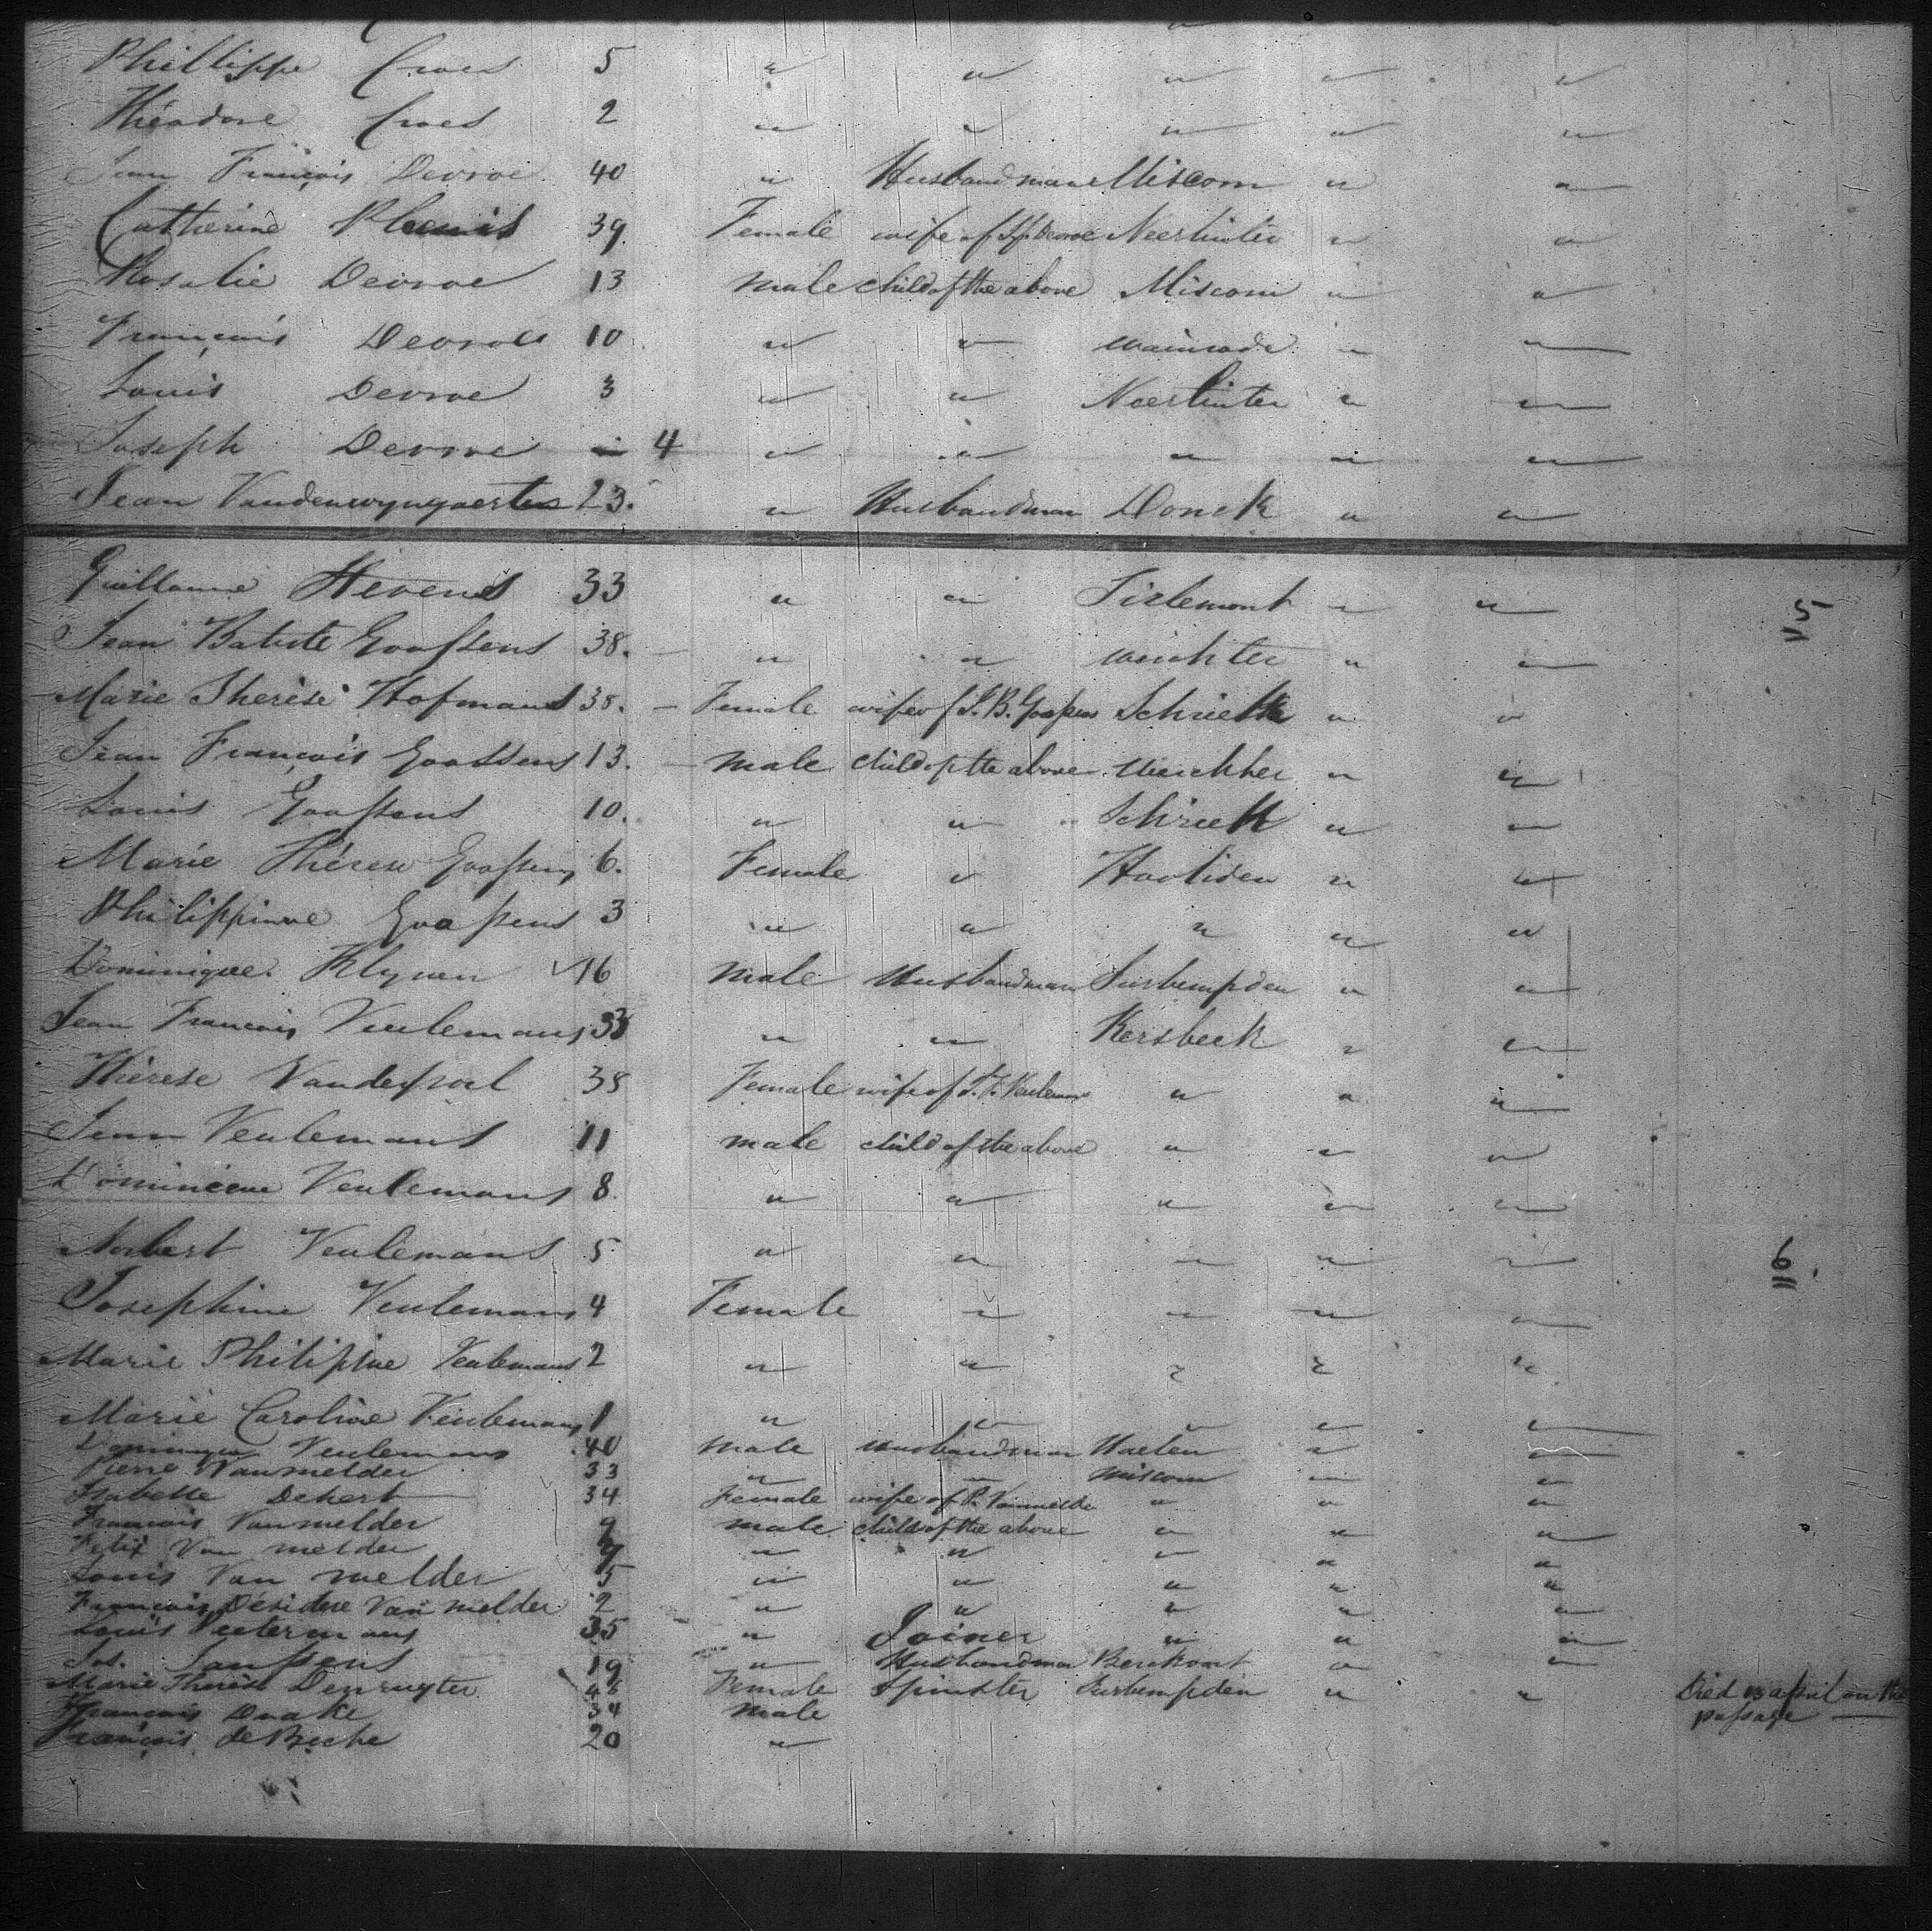 Phillippe Croes 5 " " " " "
Théodore Croes 2 " " " " "
Jean François Devroe 40 " Husbandman Miscom " "
Catherine 39 Female wife of J.f. Devroe Neerlinter " "
Rosalie Devroe 13 male child of the above Miscom " "
François Devroe 10 " " " "
Louis Devroe 3 " " Neerlinter " "
Joseph Devroe 4 " " " " "
Jean Vandenwyngaerten 23. " Husbandman Donck " "
Guillaume Stevens 33 " " Tirlemont " " 5
Jean Batiste Goossens 38. " " " "
Marie Therèse Hofmans 38. Female wife of J.B. Goossens Schrieck " "
Jean François Goossens 13. male child of the above " "
Louis Goossens 10. " " Schrieck " "
Marie Thérese Goossens 6. Female " " "
Philippinne Goossens 3 " " " " "
Dominique 16 male Husbandman Surbempden " "
Jean François Veulemans 38 " " Kersbeek " "
Thérese Vanderpoel 38 Female wife of J.F. Veulemans " " "
Jean Veulemans 11 male child of the above " " "
Veulemans 8 " " " " "
Norbert Veulemans 5 " " " " " 6
Josephine Veulemans 4 Female " " " "
Marie Philipine Veulemans 2 " " " " "
Marie Caroline Veulemans 1 " " " " "
Veulemans 40 male Husbandman Haelen " "
Pierre Vanmelder 33 " " Miscom " "
Isabelle Dekert 34 Female wife of P. Vanmelder " " "
François Vanmelder 9 male child of the above " " "
Felix Van melder " " " " "
Louis Van melder 5 " " " " "
François Désidere Van melder 2 " " " " "
Louis 35 " Joiner " " "
Jos. Janssens 19 " Husbandman " "
Marie Therèse Deruyter Female Spinster Surbempden " " Died 13 april on the
passage
François Drake 34 male
François de Beche 20 "